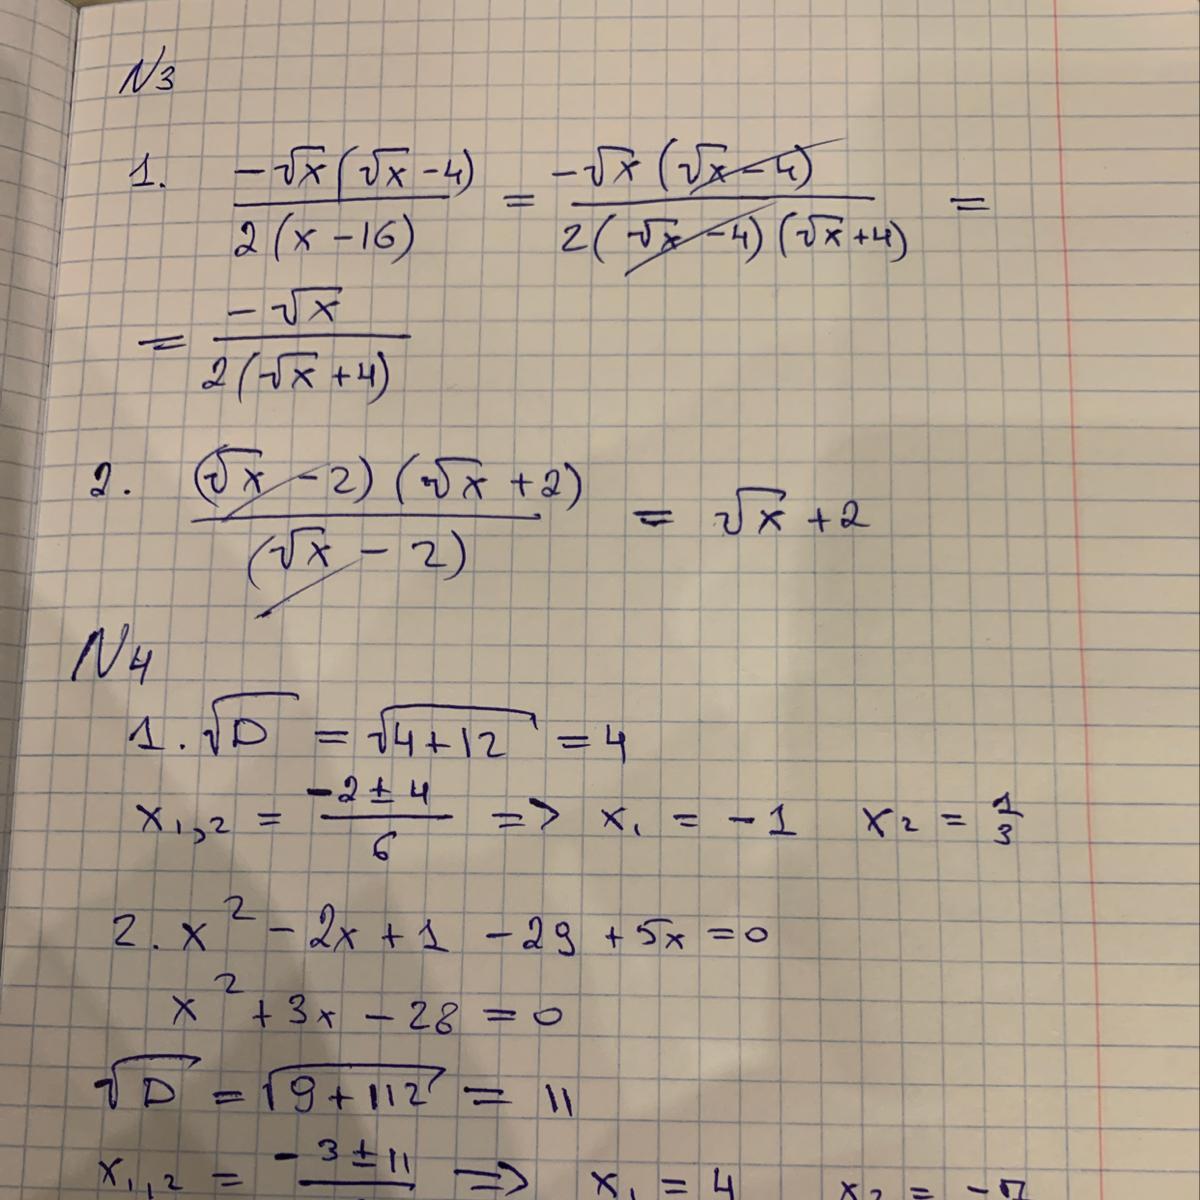 N3
1. -√x(√x -4) / 2(x-16) = -√x (√x-4) / 2(√x-4)(√x+4) =
= -√x / 2(√x+4)
2. (√x-2)(√x+2) / (√x-2) = √x+2
N4
1. √D = √4+12 = 4
x1,2 = -2±4 / 6 => x1 = -1 x2 = 1/3
2. x² - 2x + 1 - 29 + 5x = 0
x² + 3x - 28 = 0
√D = √9+112 = 11
x1,2 = -3±11 => x1 = 4 x2 =